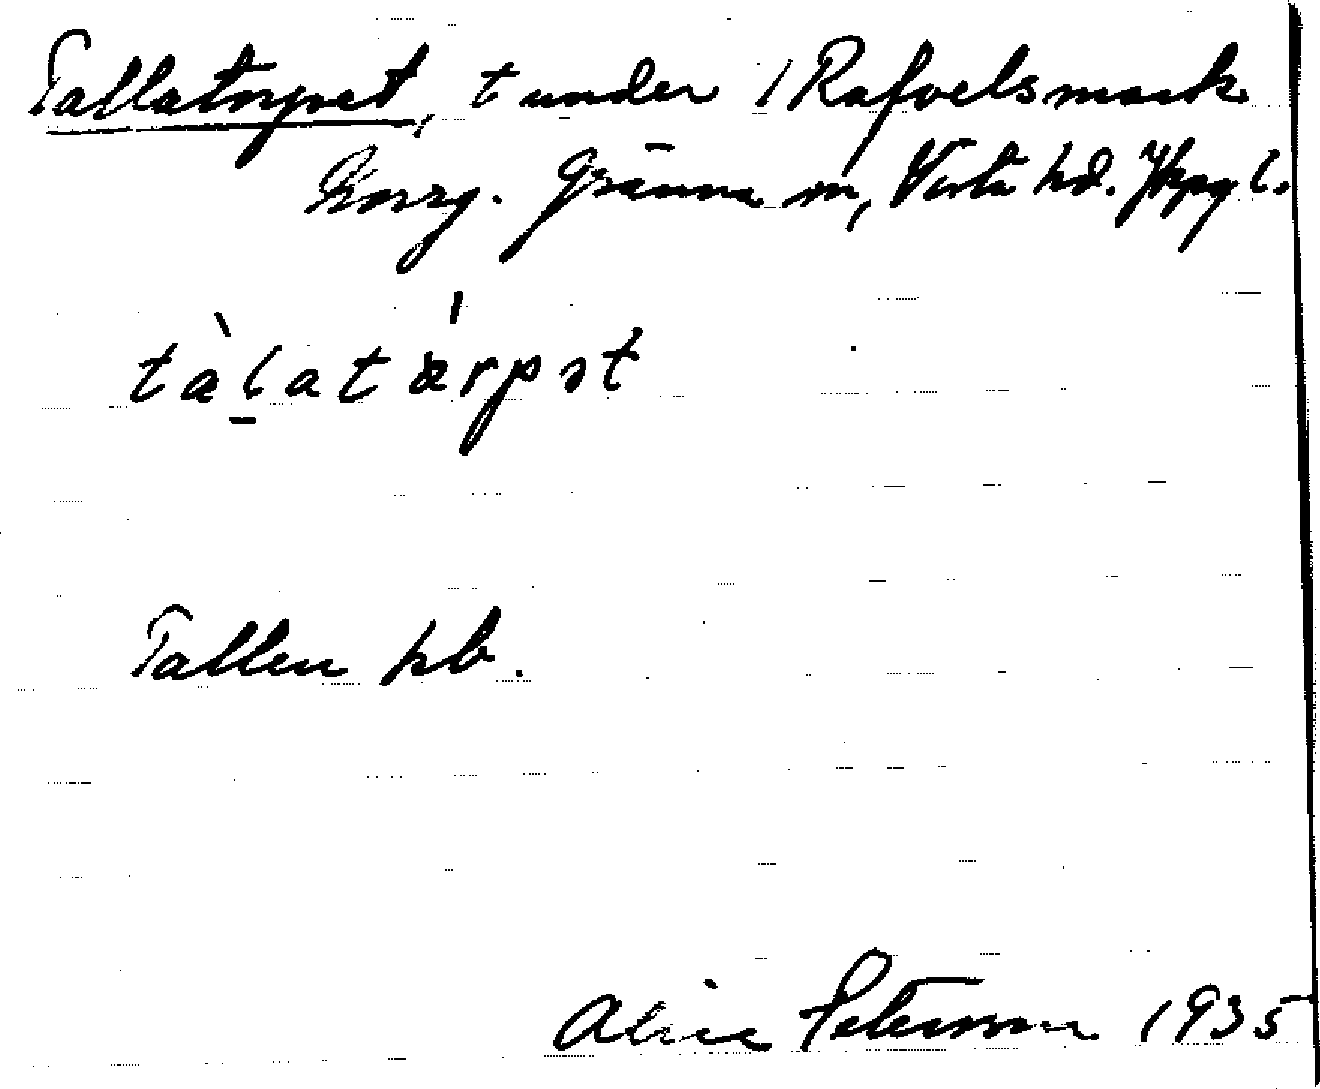 Tallatorpet, t under 1 Rafvelsmark
Gränna m, Vista hd. Jkpg l.
tàl̠atǽrpət
Tallen hb.
Alice Peterson 1935